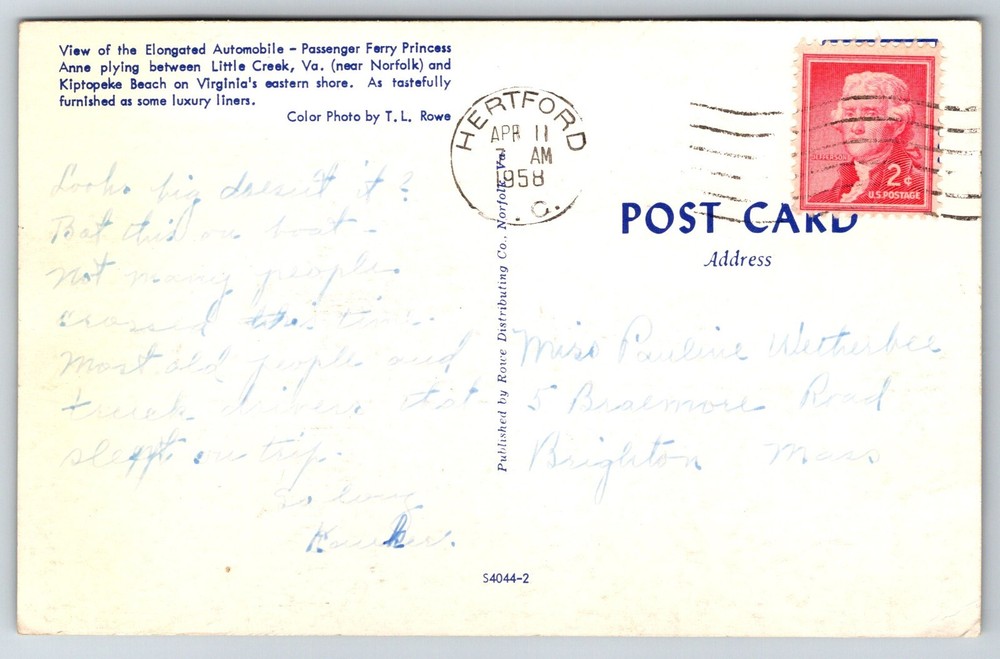 View of the Elongated Automobile – Passenger Ferry Princess
Anne plying between Little Creek, Va. (near Norfolk) and
Kiptopeke Beach on Virginia's eastern shore. As tastefully
furnished as some luxury liners.
Color Photo by T. L. Rowe
Looks big doesn't it?
Bat this on boat
not many people
crossed this time.
Most old people and
truck drivers that
slept on trip.
So long
HERTFORD
APR 11
AM
1958
. C.
Published by Rowe Distributing Co., Norfolk, Va.
JEFFERSON
2¢
U.S. POSTAGE
POST CARD
Address
Miss Pauline Wetherbee
5 Braemore Road
Brighton Mass
S4044-2